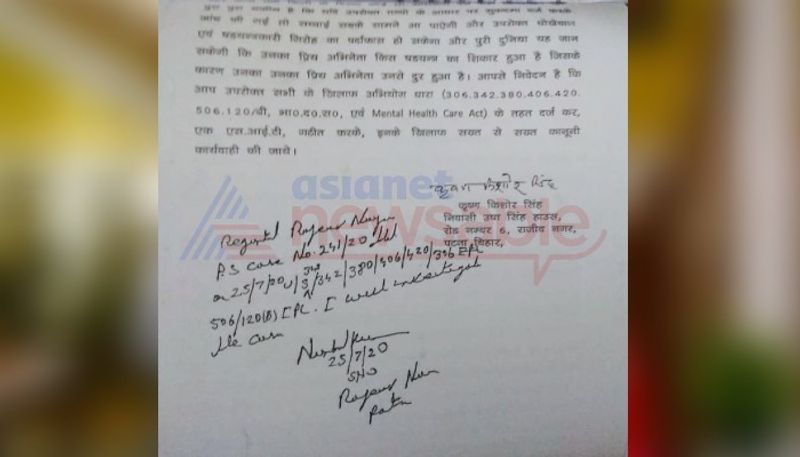 जांच की गई तो सच्चाई सबके सामने आ पाऐगी और उपरोक्त धोखेबाज
एवं षडयन्त्रकारी गिरोह का पर्दाफास हो सकेगा और पुरी दुनिया यह जान
सकेगी कि उनका प्रिय अभिनेता किस षडयन्त्र का शिकार हुआ है जिसके
कारण उनका उनका प्रिय अभिनेता उनसे दुर हुआ है। आपसे निवेदन है कि
आप उपरोक्त सभी के खिलाफ अभियोग धारा (306.342.380.406.420.
506.120/बी, भा०द०स०, एवं Mental Health Care Act) के तहत दर्ज कर,
एक एस.आई.टी, गठीत करके, इनके खिलाफ सख्त से सख्त कानूनी
कार्यवाही की जाये।
asianet
newsable
कृष्ण किशोर सिंह
निवासी उषा सिंह हाउस,
रोड नम्बर 6, राजीव नगर,
पटना बिहार,
P.S case No. 241/20
on 25/7/20 342/380/406/420/306 IPC
506/120(B) IPC. I will investigate
the case
25/7/20
SHO